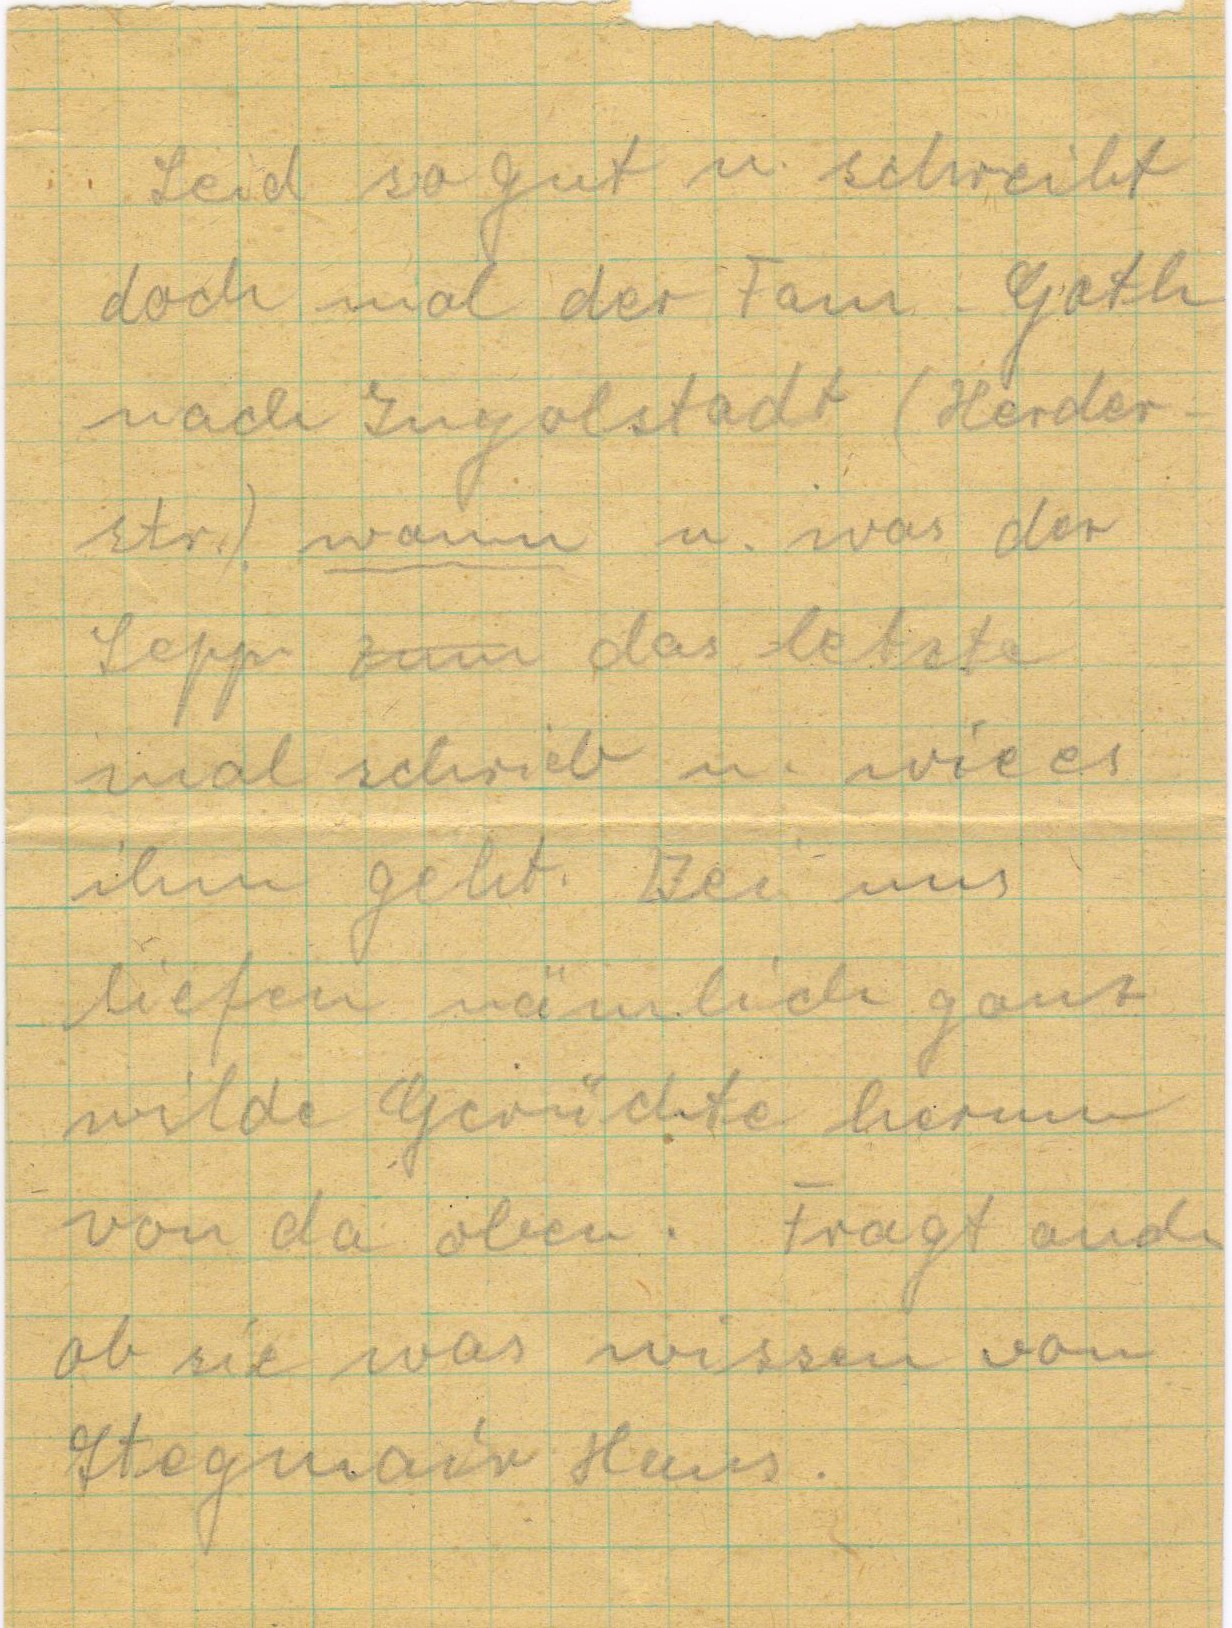 Seid so gut u. schreibt
doch mal der Fam. Goth
nach Ingolstadt (Herder-
str.) wann u. was der
Sepp zum das letzte
mal schrieb u. wie es
ihm geht. Bei uns
liefen nämlich ganz
wilde Gerüchte herum
von da oben. Fragt auch
ob sie was wissen von
Stegmair Hans.